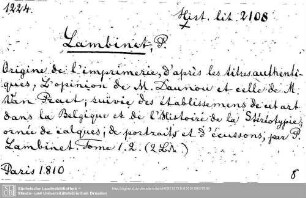 1224.
Hist. lit. 2108
Lambinet, P.
Origine de l'imprimerie, d'après les titres authenti-
ques, L'opinion de M. Daunou et celle de M.
Van Praet; suivie des établissemens de cet art
dans la Belgique et de l'Histoire de la Stéréotypie;
ornée de calques; de portraits et d'écussons, par P.
Lambinet Tome 1.2.
Paris 1810
8